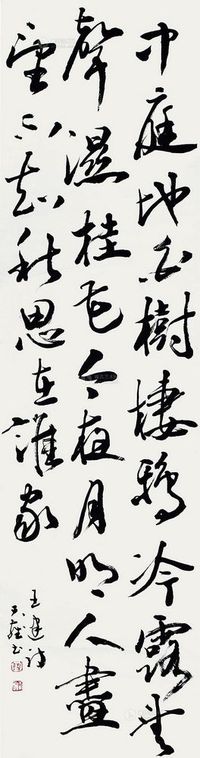 中庭地白樹棲鴉冷露無
聲濕桂花今夜月明人盡
望不知秋思在誰家
王建詩
書